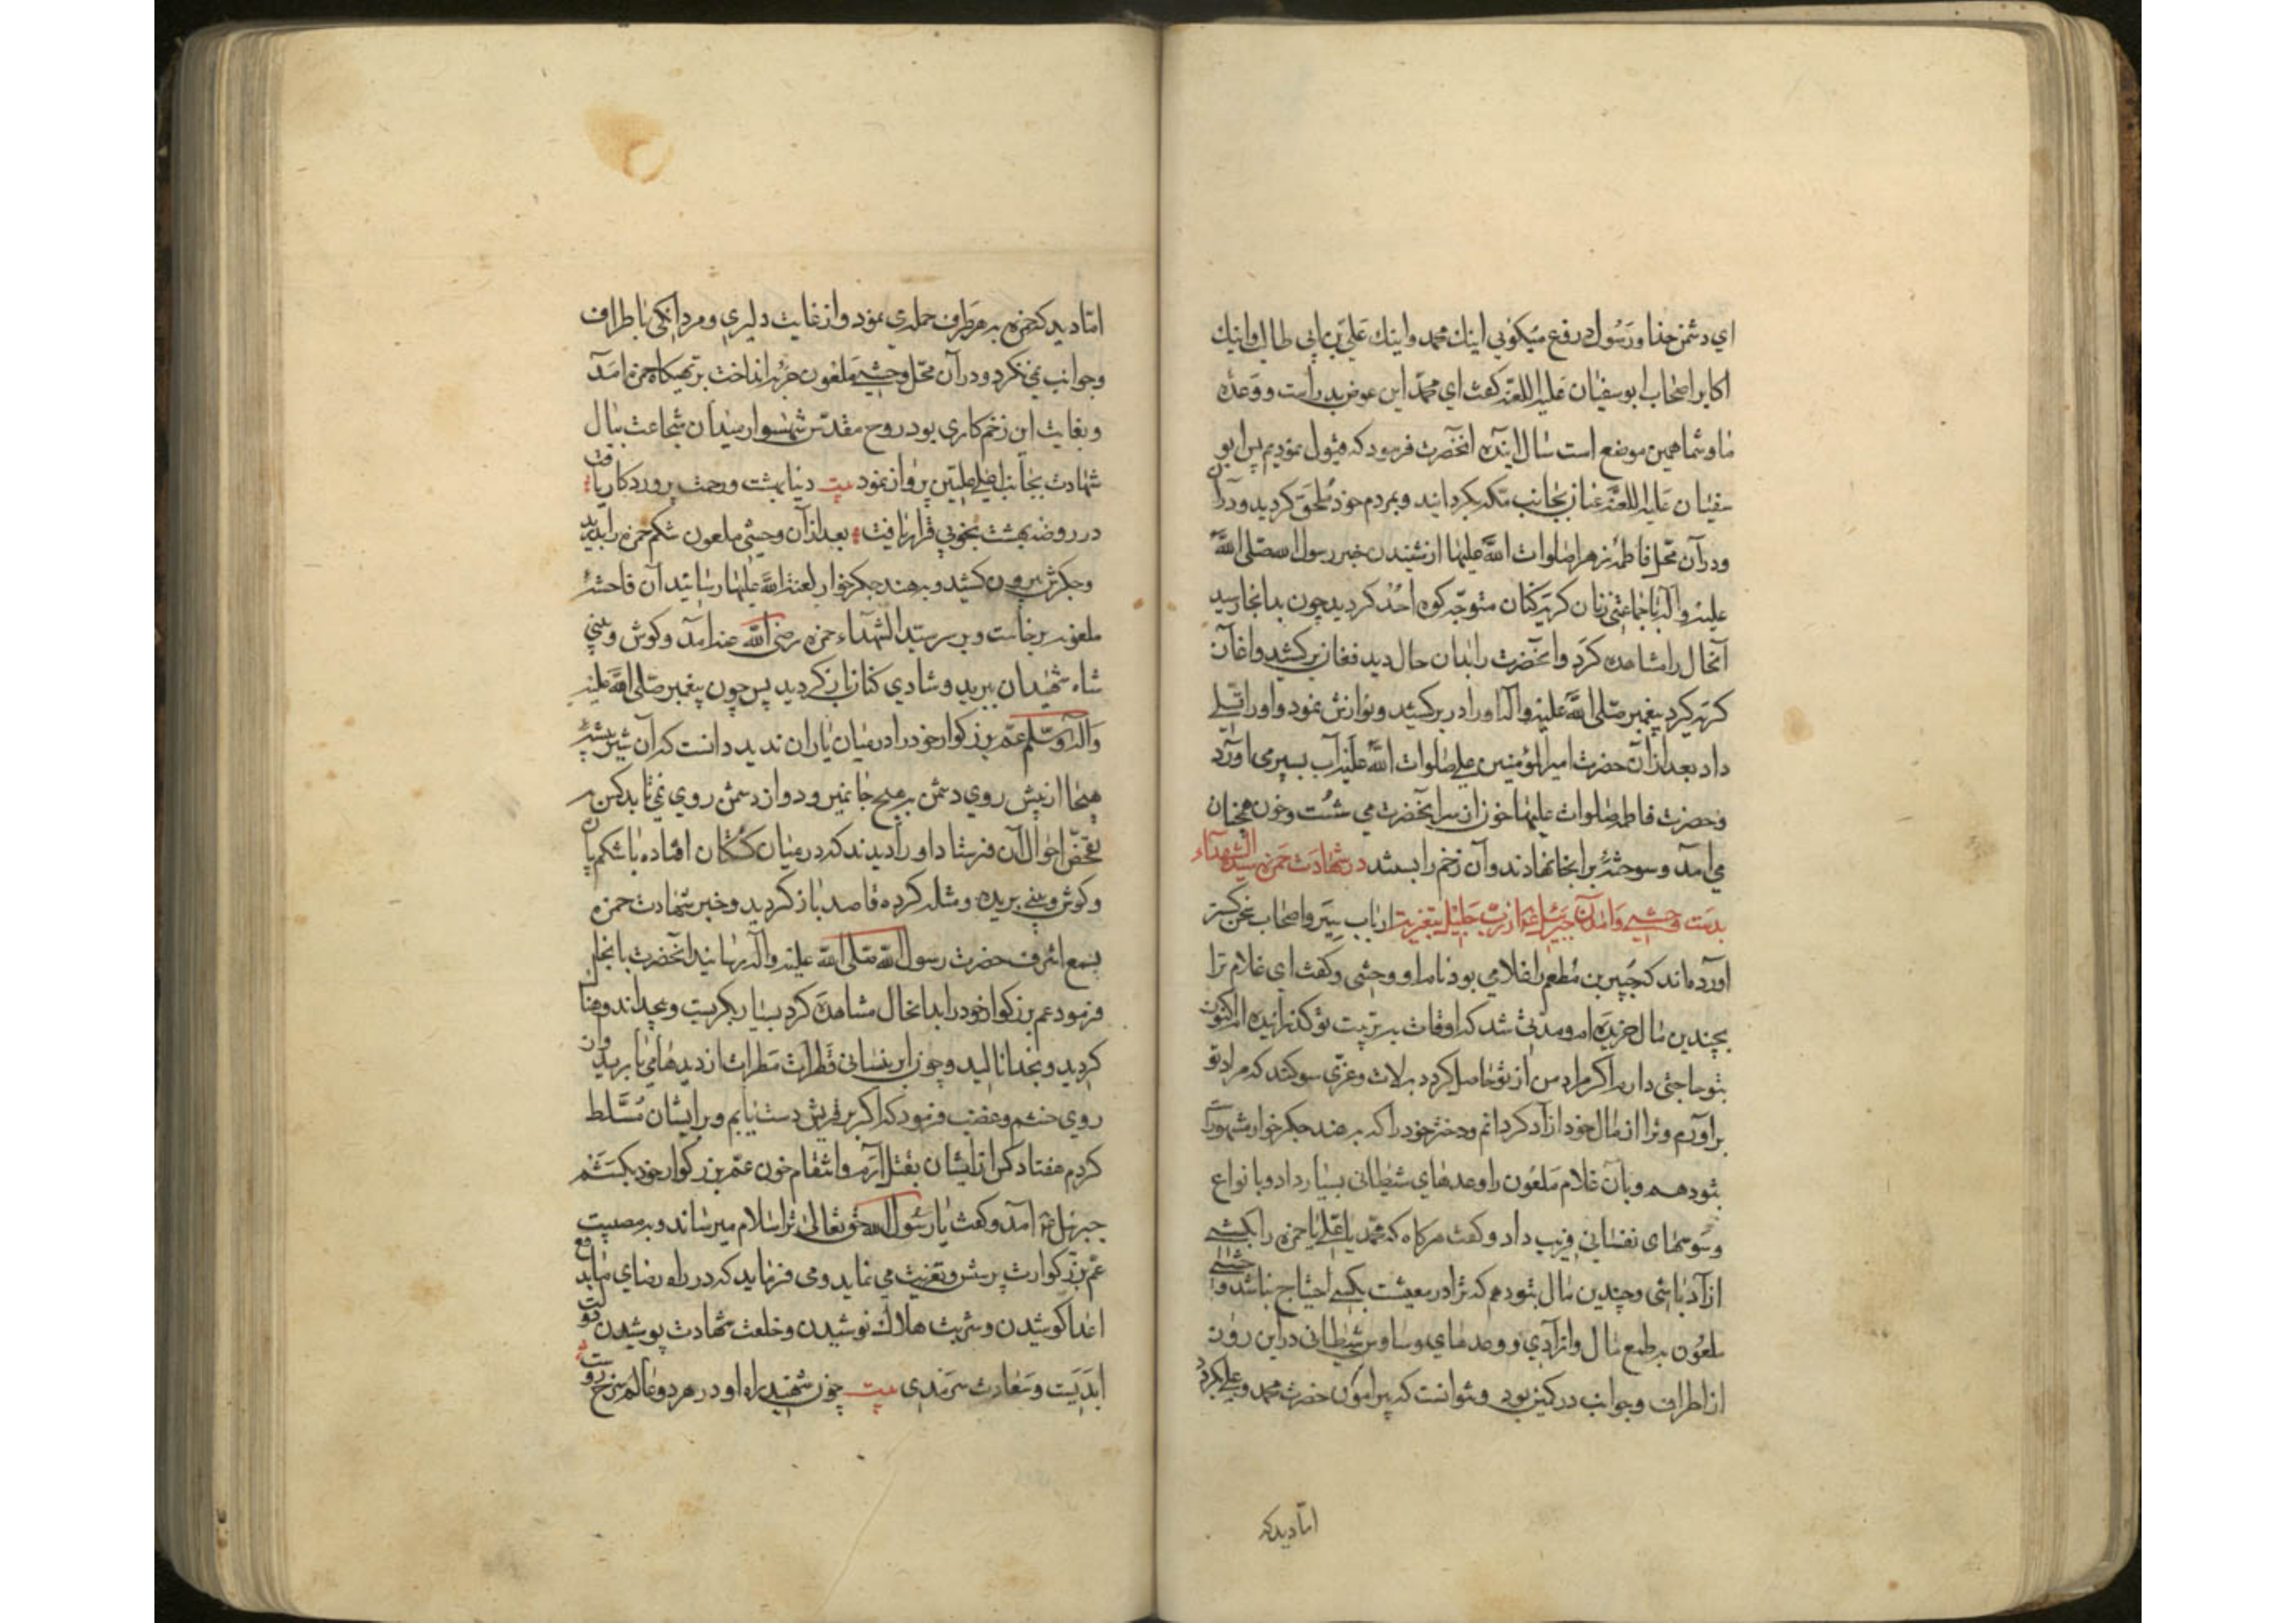 ای دشمن خدا و رسول دروغ میگوئی اینك محمد و اینك علی بن ابی طالب و اینك
اکابر اصحاب ابوسفیان علیه اللعنه گفت ای محمد این عوض بدر است و وعدهٔ
ما و شما همین موضع است سال آینده آنحضرت فرمود که قبول نمودیم پس ابو
سفیان علیه اللعنه عنان بجانب مکه بگردانید و بمردم خود ملحق گردید
و در آن محل فاطمه زهرا صلوات الله علیها از شنیدن خبر رسول الله صلی الله
علیه و آله با جماعتی زنان گریه کنان متوجه کوه احد گردید چون بدانجا رسید
آنحال را مشاهده کرد و آنحضرت را بدان حال دید فغان برکشید و آغاز
گریه کرد پیغمبر صلی الله علیه و آله او را در بر کشید و نوازش نمود و او را تسلی
داد بعد از آن حضرت امیرالمؤمنین علی صلوات الله علیه آب بسپر می آورد
و حضرت فاطمه صلوات علیها خون از سر آنحضرت می شست و خون همچنان
می آمد و سوخته بر آنجا نهادند و آن زخم را ببستند در شهادت حمزه سید الشهداء
بدست وحشی و آمدن جبرئیل از رب جلیل بتعزیت ارباب سیر و اصحاب خبر
آورده اند که جبیر بن مطعم را غلامی بود نام او وحشی و گفت ای غلام ترا
بچندین مال خریده ام و مدتی شد که اوقات بتربیت تو گذرانیده ام اکنون
بتو حاجتی دارم اگر مراد من از تو حاصل گردد بلات و عزی سوگند که مراد تو
برآورم و ترا از مال خود آزاد گردانم و دختر خود را که بهند جگر خوار مشهور است
بتو دهم و بآن غلام ملعون را وعدهای شیطانی بسیار داد و با نواع
وسوسهای نفسانی فریب داد و گفت هرگاه که محمد یا علی یا حمزه را بکشی
آزاد باشی و چندین مال بتو دهم که ترا در معیشت بکسی احتیاج نباشد
ملعون بر طمع مال و آزادی و وعدهای وساوس شیطانی در این روز
از اطراف و جوانب در کمین بود و نتوانست که پیرامون حضرت محمد و علی گردد
اما دید که
اما دید که حمزه بهر طرف حمله می نمود و از غایت دلیری و مردانگی با طراف
و جوانب نمی نگرد و در آن محل وحشی ملعون حربه انداخت بر تهیگاه حمزه آمد
و بغایت این زخم کاری بود روح مقدس شهسوار میدان شجاعت ببال
شهادت بجانب اعلی علیین پرواز نمود بیت دنیا بهشت و رحمت پروردگار یافت
در روضه بهشت بخوبی قرار یافت بعد از آن وحشی ملعون شکم حمزه را بدرید
و جگرش بیرون کشید و بهند جگر خوار لعنة الله علیها رسانید آن فاحشهٔ
ملعونه برخاست و بر سر سید الشهداء حمزه رضی الله عنه آمد و گوش و بینی
شاه شهیدان ببرید و شادی کنان باز گردید پس چون پیغمبر صلی الله علیه
و آله و سلم عم بزرگوار خود را در میان یاران ندید دانست که آن شیر بیشهٔ
هیجا از پیش روی دشمن بهیچ جا نمیرود و از دشمن روی نمی تابد کس
بتفحص احوال آن فرستاد او را دیدند که در میان کشتگان افتاده با شکم پاره
و گوش و بینی بریده و مثله کرده قاصد باز گردید و خبر شهادت حمزه
بسمع اشرف حضرت رسول الله صلی الله علیه و آله رسانید آنحضرت بآنجا
فرمود عم بزرگوار خود را بدانحال مشاهده کرد بسیار بگریست
گردید و بخدا نالید و چون ابر نیسانی قطرات مطرات از دیدهای بارید و از
روی خشم و غضب فرمود که اگر بر قریش دست یابم و بر ایشان مسلط
گردم هفتاد کس از ایشان بقتل آرم و انتقام خون عم بزرگوار خود بکشم
جبرئیل آمد و گفت یا رسول الله حق تعالی ترا سلام میرساند و بر مصیبت
عم بزرگوارت پرسش و تعزیت می نماید و می فرماید که در راه رضای ما
اعدا کوشیدن و شربت هلاك نوشیدن و خلعت شهادت پوشیدن دولت
ابدیت و سعادت سرمدی بیت چون شهید راه او در هر دو عالم سرخ روست